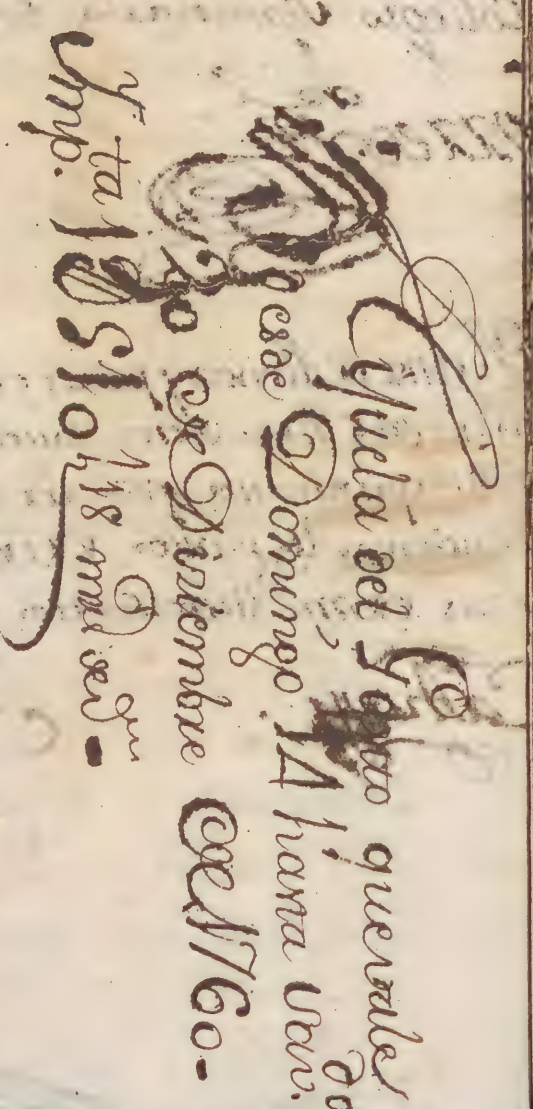 Ayuda del Gasto que sale
desde Domingo 14 hasta Sav.do
20 de Diziembre de 1760-
Ymp.ta 1 510 r 18 mrs de vn -